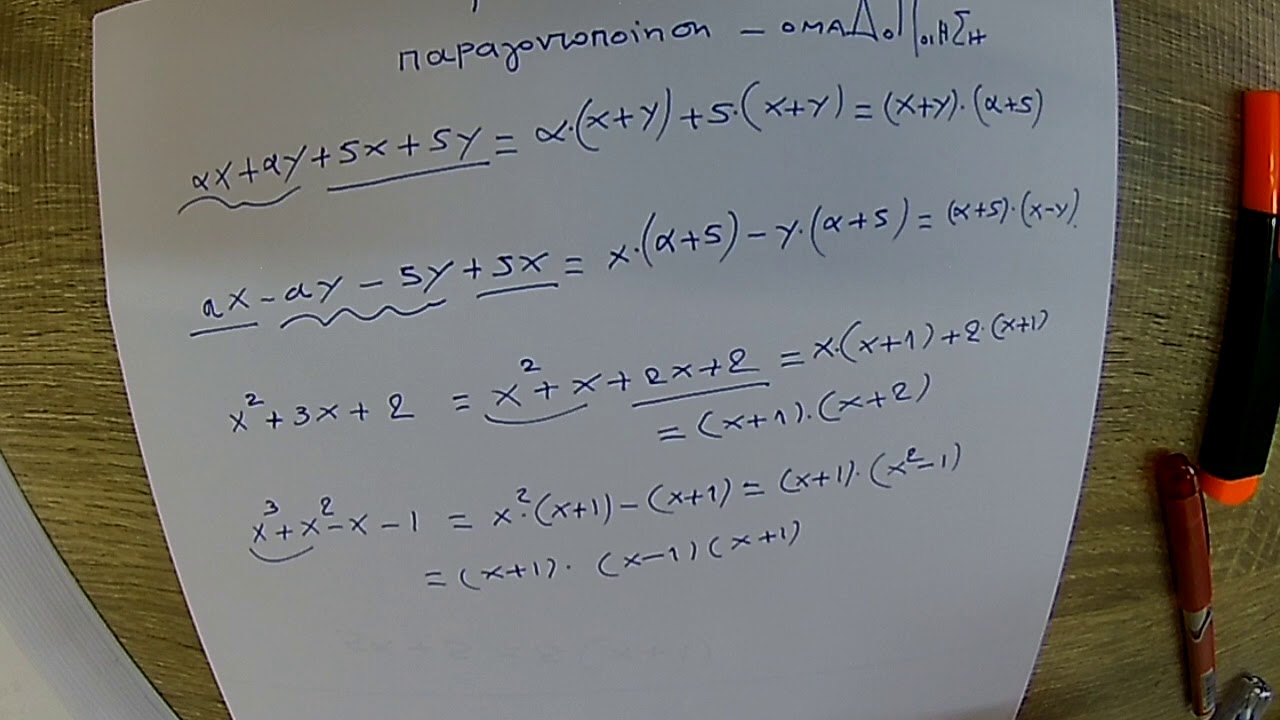 παραγοντοποίηση - ΟΜΑΔΟΠΟΙΗΣΗ
αx+αy+5x+5y = α·(x+y)+5·(x+y) = (x+y)·(α+5)
αx-αy-5y+5x = x·(α+5)-y·(α+5) = (α+5)·(x-y)
x²+3x+2 = x²+x+2x+2 = x·(x+1)+2·(x+1)
= (x+1)·(x+2)
x³+x²-x-1 = x²·(x+1)-(x+1) = (x+1)·(x²-1)
= (x+1)·(x-1)(x+1)